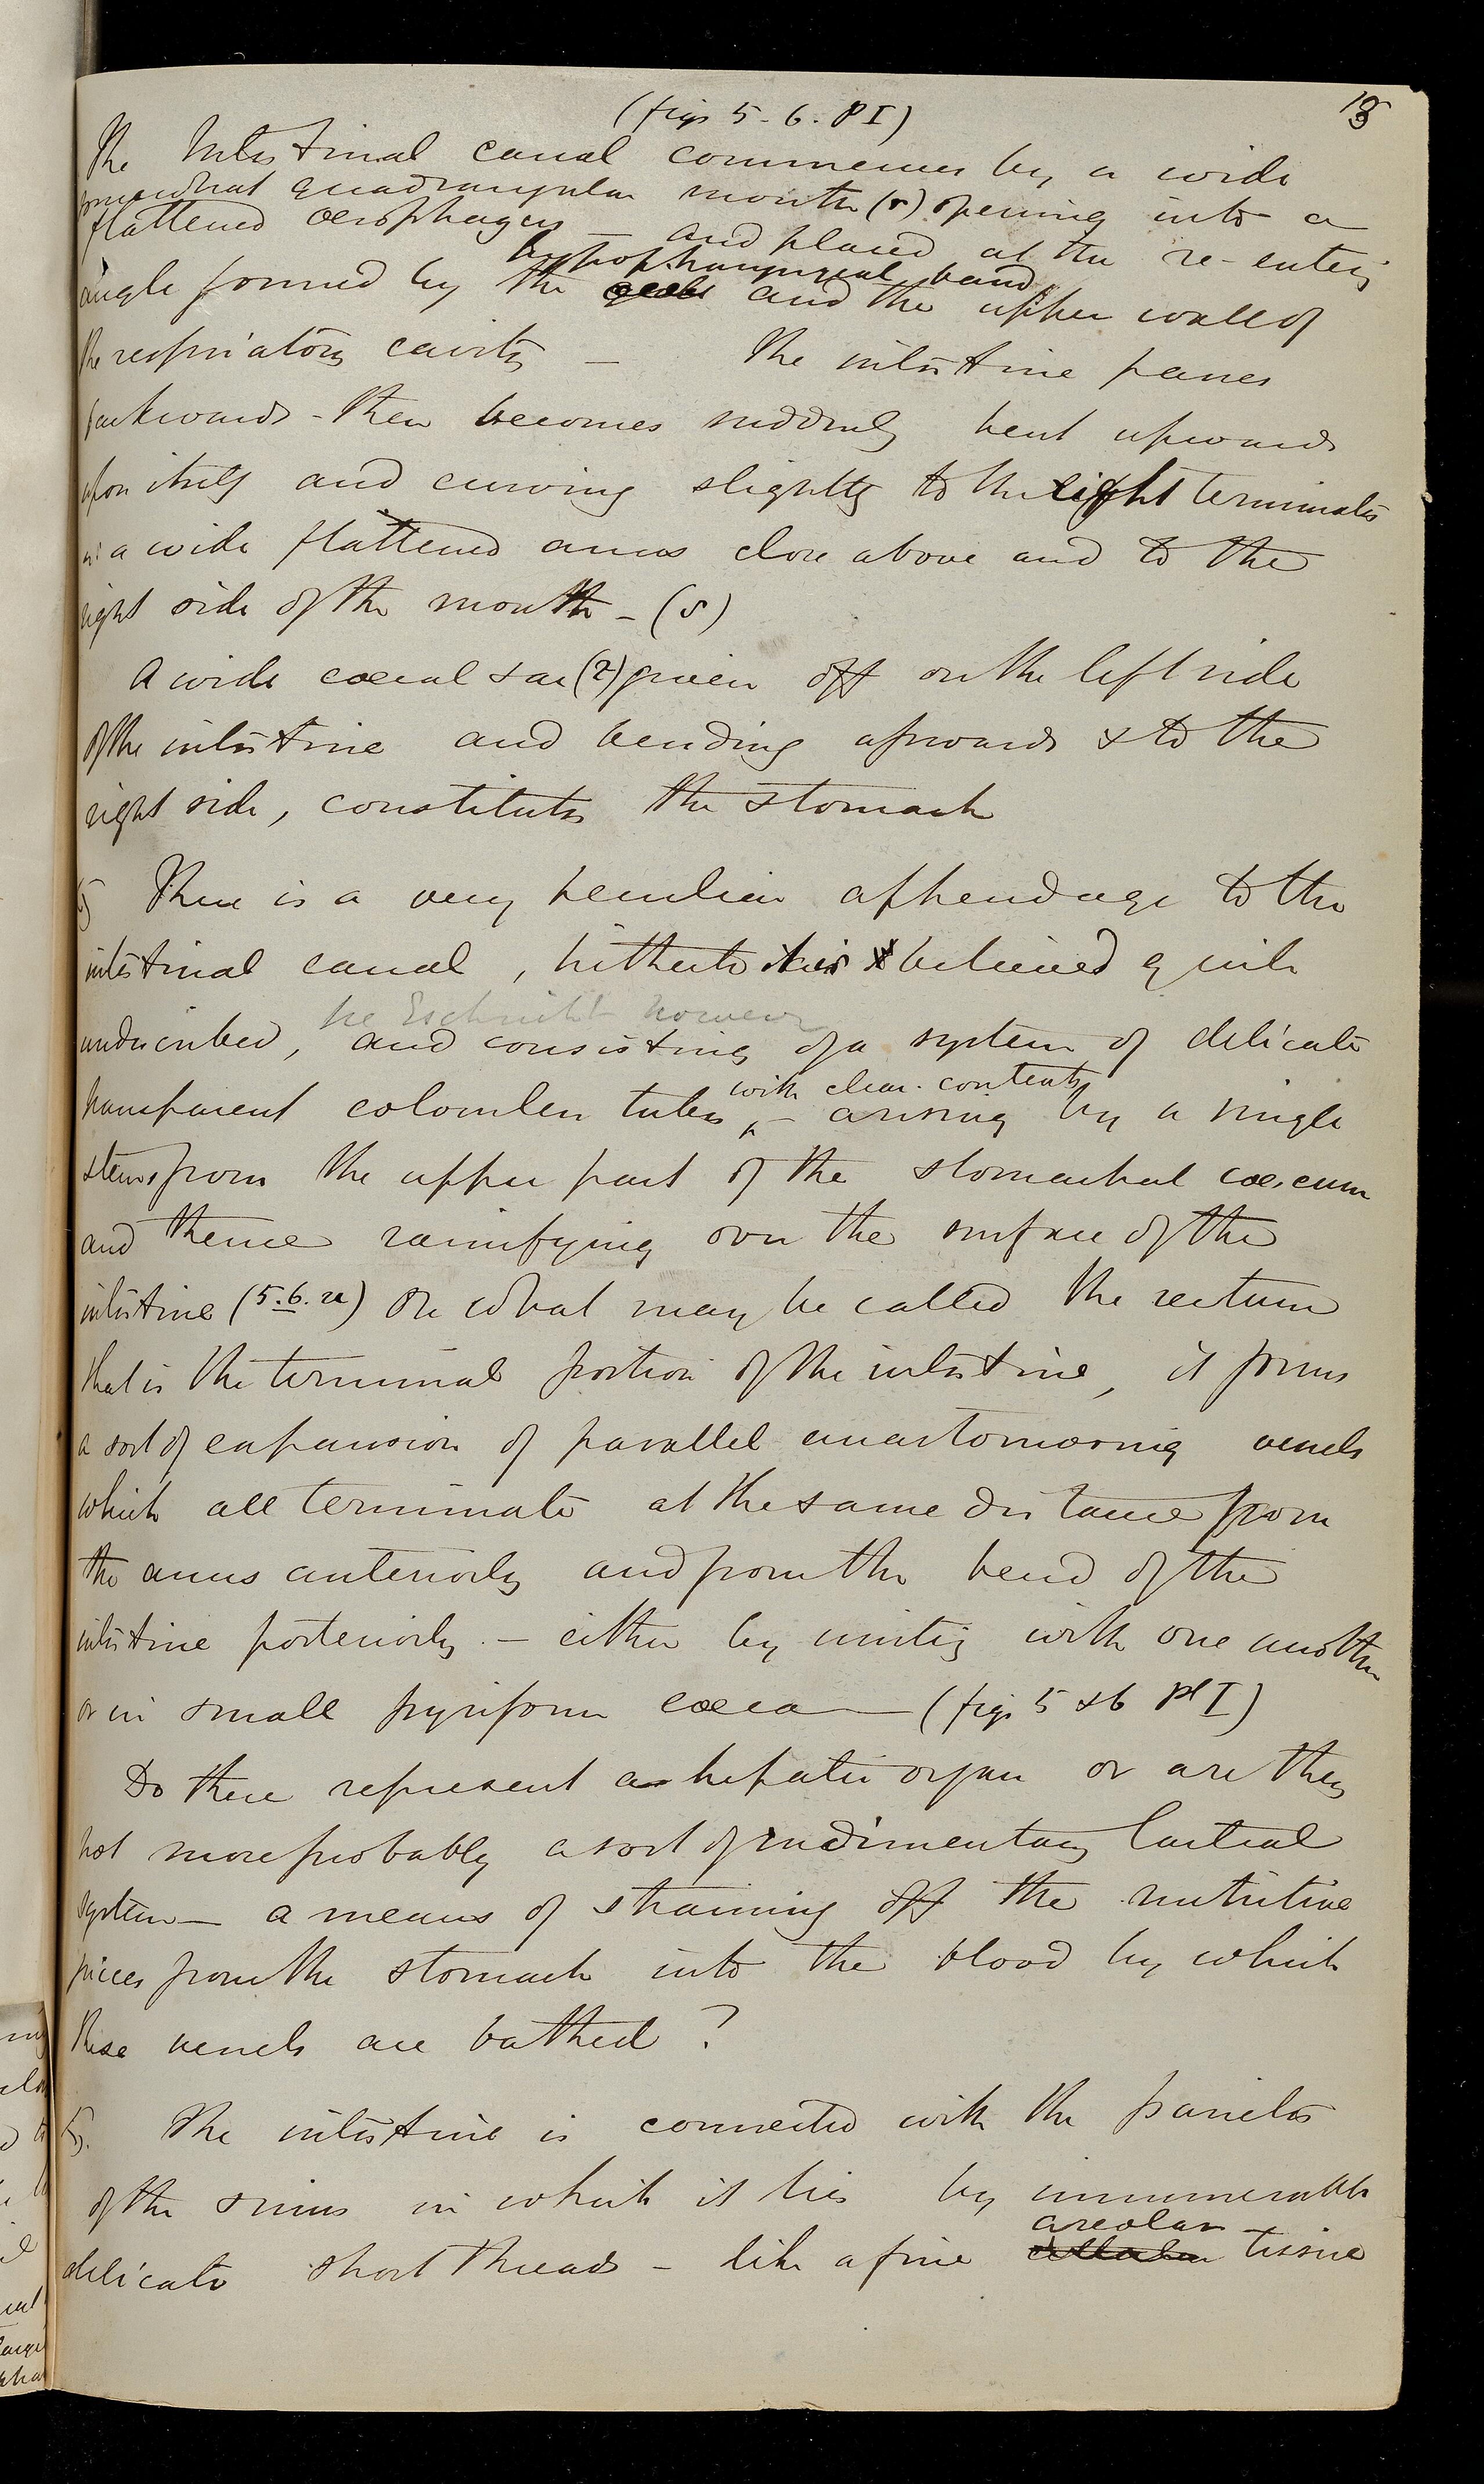 (figs 5. 6. Pl I)
The Intestinal canal commences by a wide
somewhat quadrangular mouth (r) opening into a
flattened oesophagus — and placed at the re-entering
hypopharyngeal band
angle formed by the and the upper wall of
the respiratory cavity — The intestine passes
backwards - then becomes suddenly bent upwards
upon itself and curving slightly to the right terminates
in a wide flattened anus close above and to the
right side of the mouth - (s)
A wide coecal sac (2) given off on the left side
of the intestine and bending upwards & to the
right side, constitutes the stomach
There is a very peculiar appendage to the
intestinal canal, hitherto believed quite
Eschricht however
undescribed, and consisting of a system of delicate
with clear contents
transparent colourless tubes, - arising by a single
stem from the upper part of the stomachal coecum
and thence ramifying over the surface of the
intestine (5.6. u) On what may be called the rectum
that is the terminal portion of the intestine, it forms
a sort of expansion of parallel anastomosing vessels
which all terminate at the same distance from
the anus anteriorly and from the bend of the
intestine posteriorly - either by uniting with one another
or in small pyriform coeca — (figs 5 & 6 Pl I)
Do these represent a hepatic organ or are they
not more probably a sort of rudimentary lacteal
system — a means of straining off the nutritive
juices from the stomach into the blood by which
these vessels are bathed?
5. The intestine is connected with the parietes
of the sinus in which it lies by innumerable
areolar
delicate short threads - like a fine cellular tissue